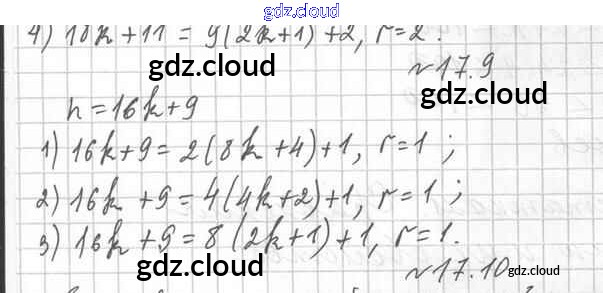 gdz.cloud
4) 18k+11 = 9(2k+1)+2, r=2.
gdz.cloud gdz.cloud
№17.9
n=16k+9
1) 16k+9=2(8k+4)+1, r=1;
gdz.cloud gdz.cloud
2) 16k+9=4(4k+2)+1, r=1;
3) 16k+9=8(2k+1)+1, r=1.
gdz.cloud
№17.10
gdz.cloud